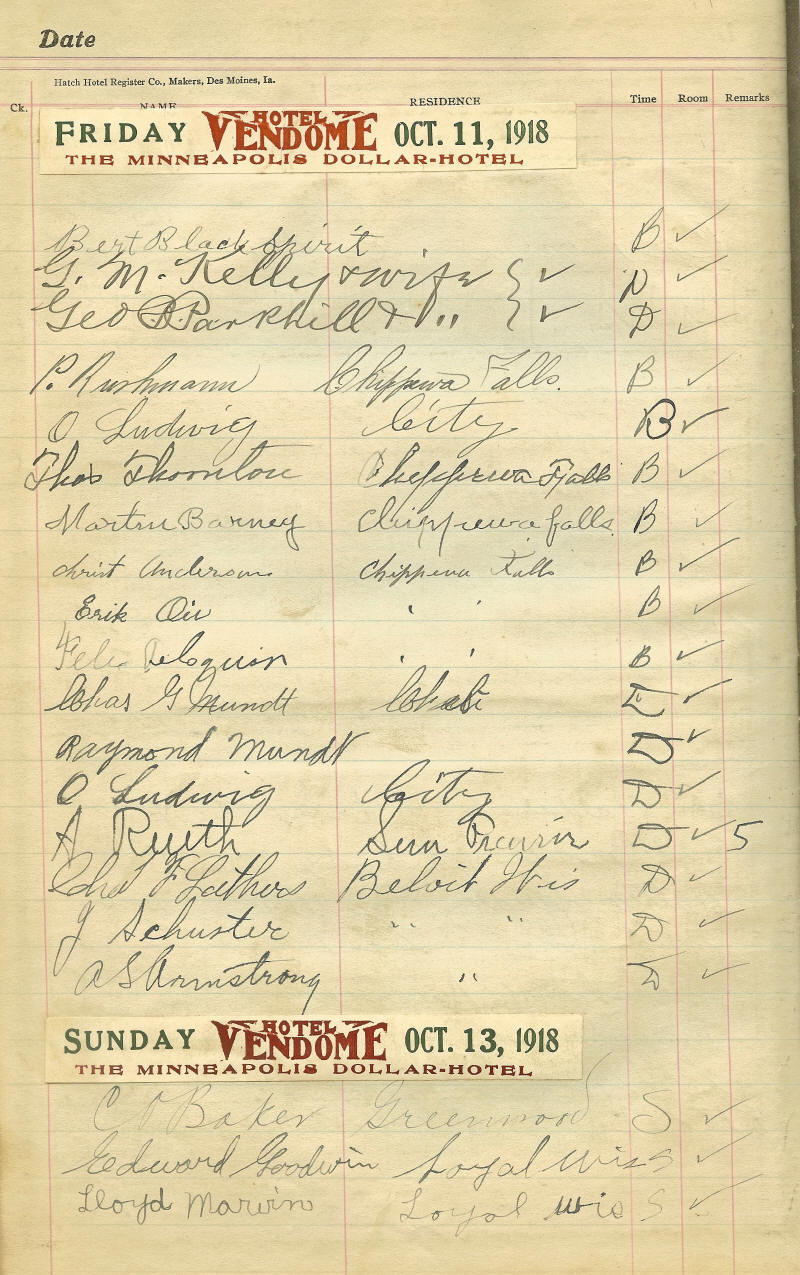 Date
Hatch Hotel Register Co., Makers, Des Moines, Ia.
Ck. NAME RESIDENCE Time Room Remarks
FRIDAY HOTEL VENDOME OCT. 11, 1918
THE MINNEAPOLIS DOLLAR-HOTEL
Bert Black Spirit B ✓
G. M. Kelly & wife } ✓ D ✓
Geo B. Parkhill & " } ✓ D ✓
P. Rushmann Chippewa Falls. B ✓
O Ludwig City B ✓
Thos Thornton Chippewa Falls B ✓
Martin Barney Chippewa falls. B ✓
Christ Anderson Chippewa Falls B ✓
Erik " " B ✓
" " B ✓
Chas G Mundt D ✓
Raymond Mundt D ✓
O Ludwig City D ✓
A Sun D ✓ 5
Chas F Lathers Beloit Wis D ✓
J Schuster " " D ✓
A S Armstrong " D ✓
SUNDAY HOTEL VENDOME OCT. 13, 1918
THE MINNEAPOLIS DOLLAR-HOTEL
C O Baker Greenwood S ✓
Edward Goodwin Loyal Wis S ✓
Lloyd Marvin Loyal Wis S ✓